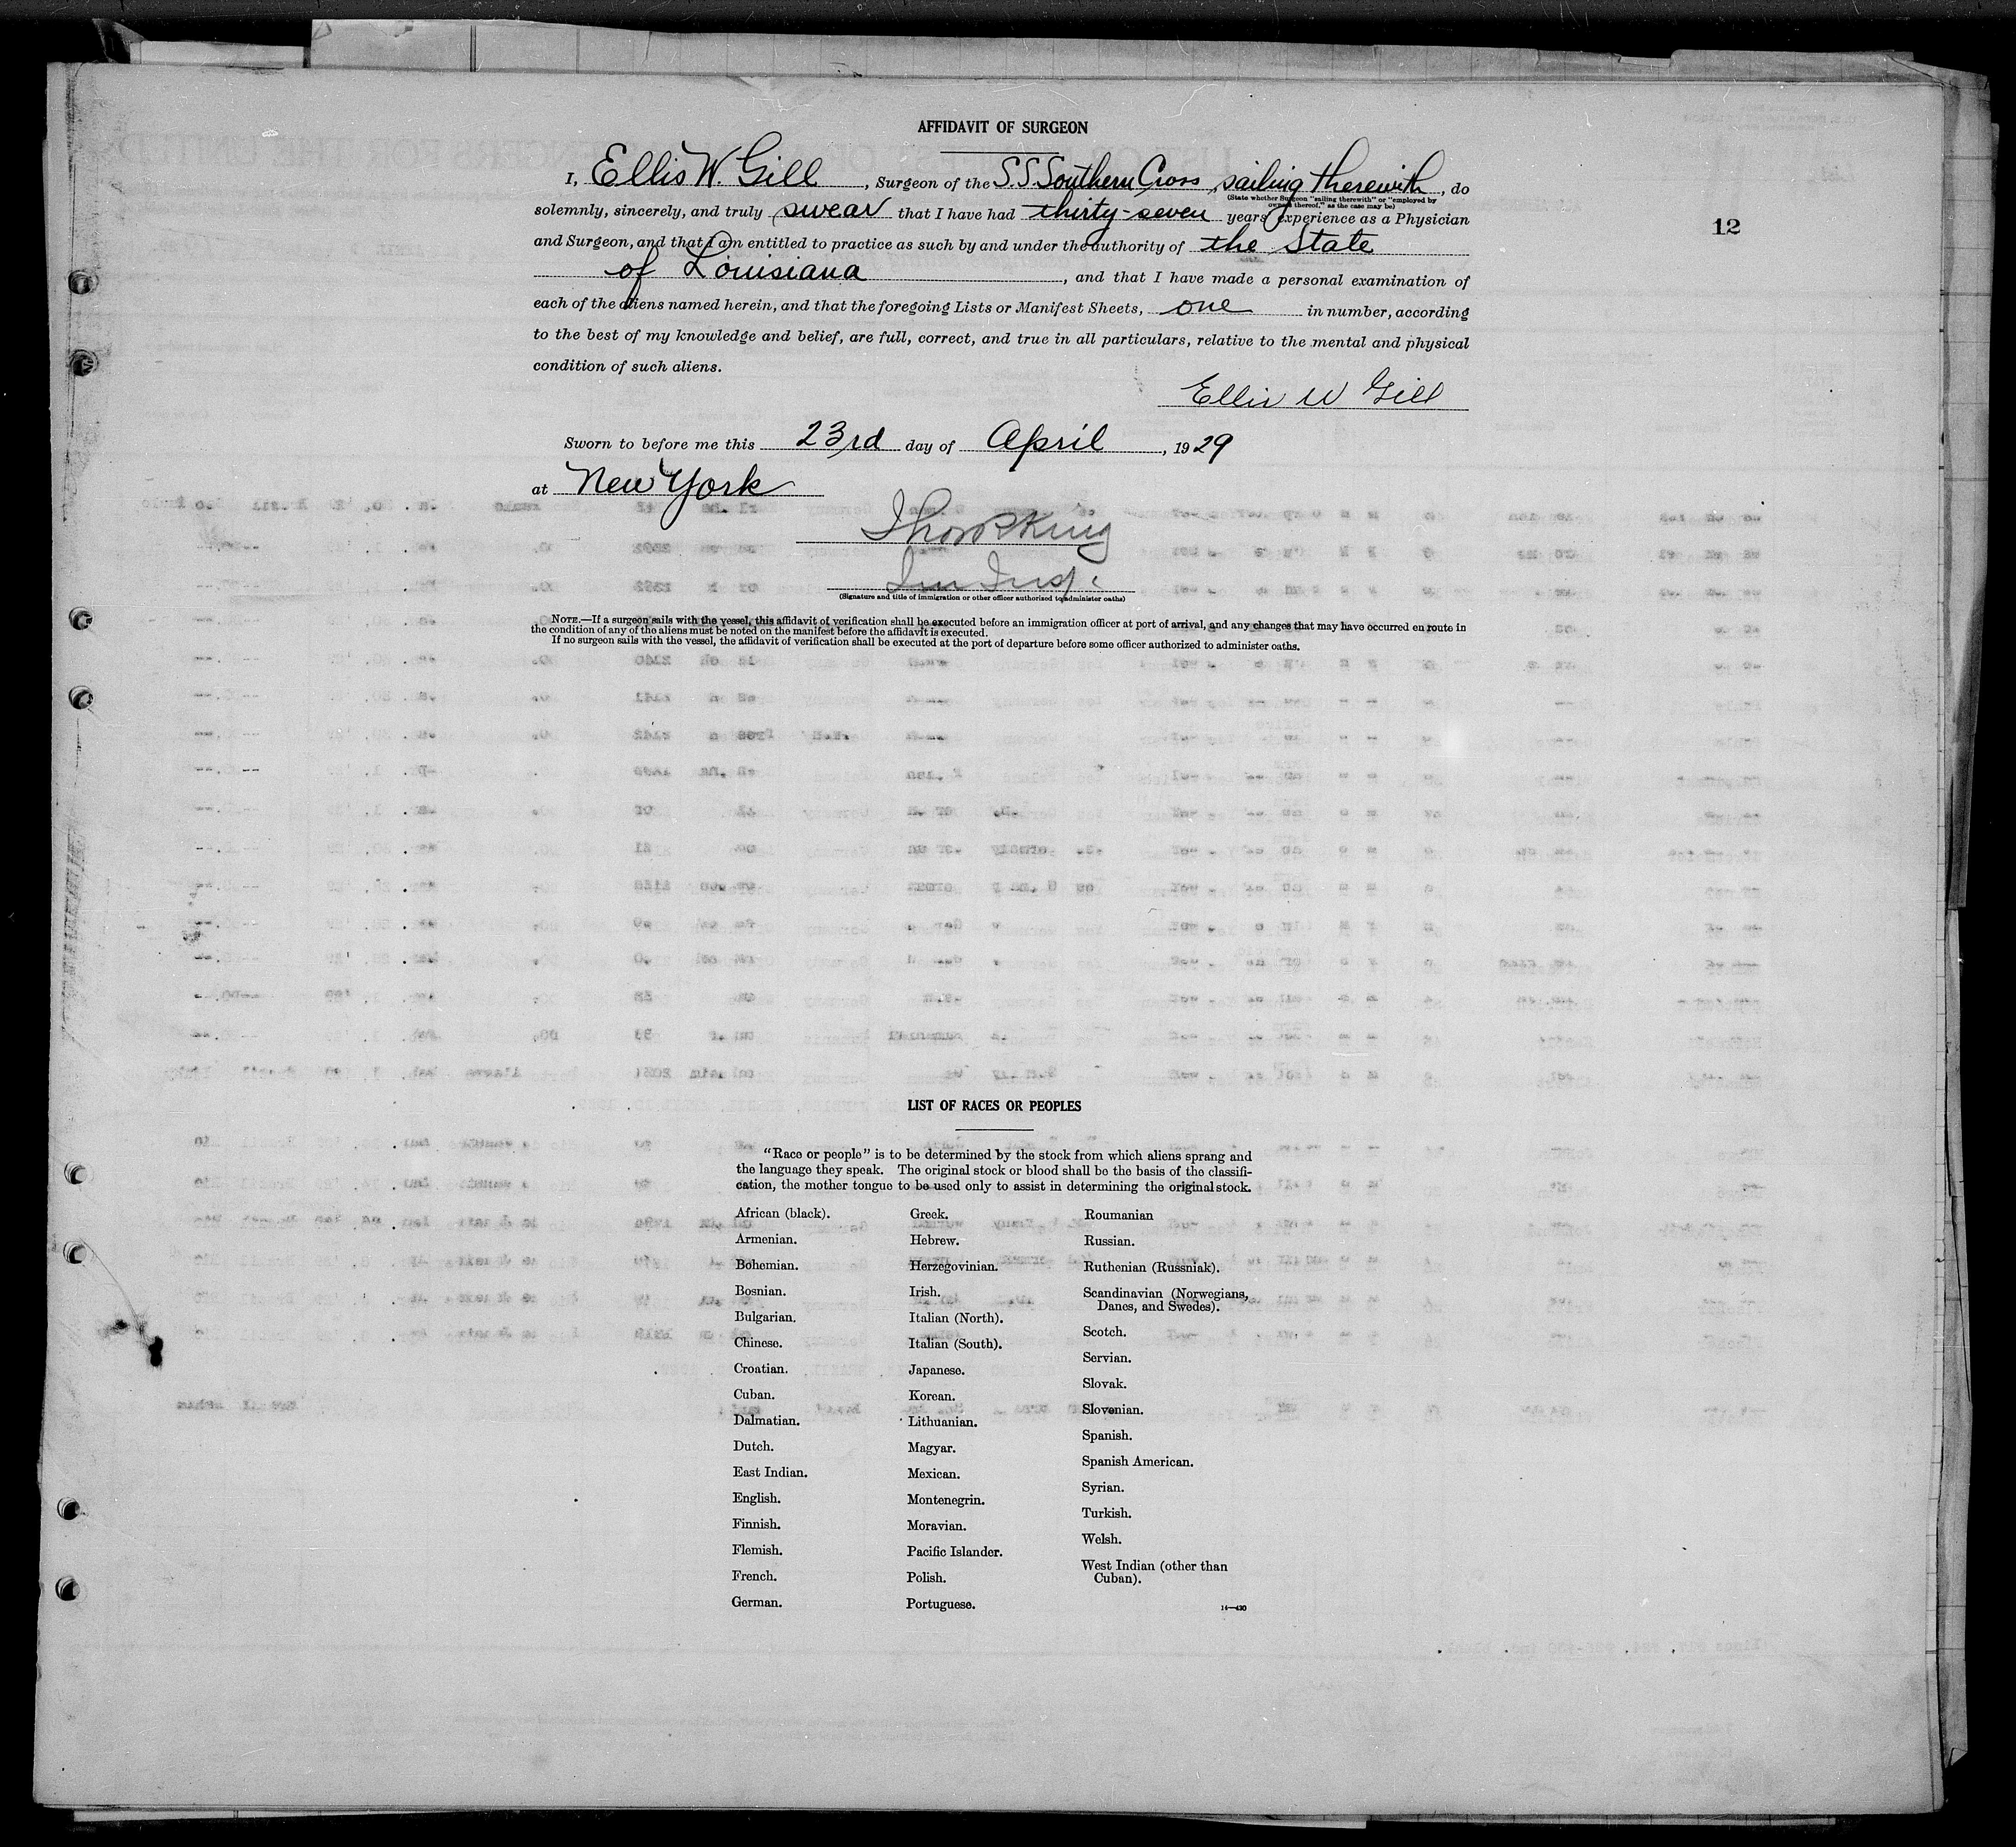 AFFIDAVIT OF SURGEON
I, Ellis W. Gill, Surgeon of the S.S. Southern Cross, sailing therewith, do
(State whether Surgeon "sailing therewith" or "employed by
owners thereof," as the case may be)
solemnly, sincerely, and truly swear that I have had thirty-seven years experience as a Physician
12
and Surgeon, and that I am entitled to practice as such by and under the authority of the State
of Louisiana, and that I have made a personal examination of
each of the aliens named herein, and that the foregoing Lists or Manifest Sheets, one in number, according
to the best of my knowledge and belief, are full, correct, and true in all particulars, relative to the mental and physical
condition of such aliens.
Ellis W Gill
Sworn to before me this 23rd day of April, 1929
at New York
King
(Signature and title of immigration or other officer authorized to administer oaths)
NOTE.—If a surgeon sails with the vessel, this affidavit of verification shall be executed before an immigration officer at port of arrival, and any changes that may have occurred en route in
the condition of any of the aliens must be noted on the manifest before the affidavit is executed.
If no surgeon sails with the vessel, the affidavit of verification shall be executed at the port of departure before some officer authorized to administer oaths.
LIST OF RACES OR PEOPLES
"Race or people" is to be determined by the stock from which aliens sprang and
the language they speak. The original stock or blood shall be the basis of the classifi-
cation, the mother tongue to be used only to assist in determining the original stock.
African (black).
Armenian.
Bohemian.
Bosnian.
Bulgarian.
Chinese.
Croatian.
Cuban.
Dalmatian.
Dutch.
East Indian.
English.
Finnish.
Flemish.
French.
German.
Greek.
Hebrew.
Herzegovinian.
Irish.
Italian (North).
Italian (South).
Japanese.
Korean.
Lithuanian.
Magyar.
Mexican.
Montenegrin.
Moravian.
Pacific Islander.
Polish.
Portuguese.
Roumanian
Russian.
Ruthenian (Russniak).
Scandinavian (Norwegians,
Danes, and Swedes).
Scotch.
Servian.
Slovak.
Slovenian.
Spanish.
Spanish American.
Syrian.
Turkish.
Welsh.
West Indian (other than
Cuban).
14—430